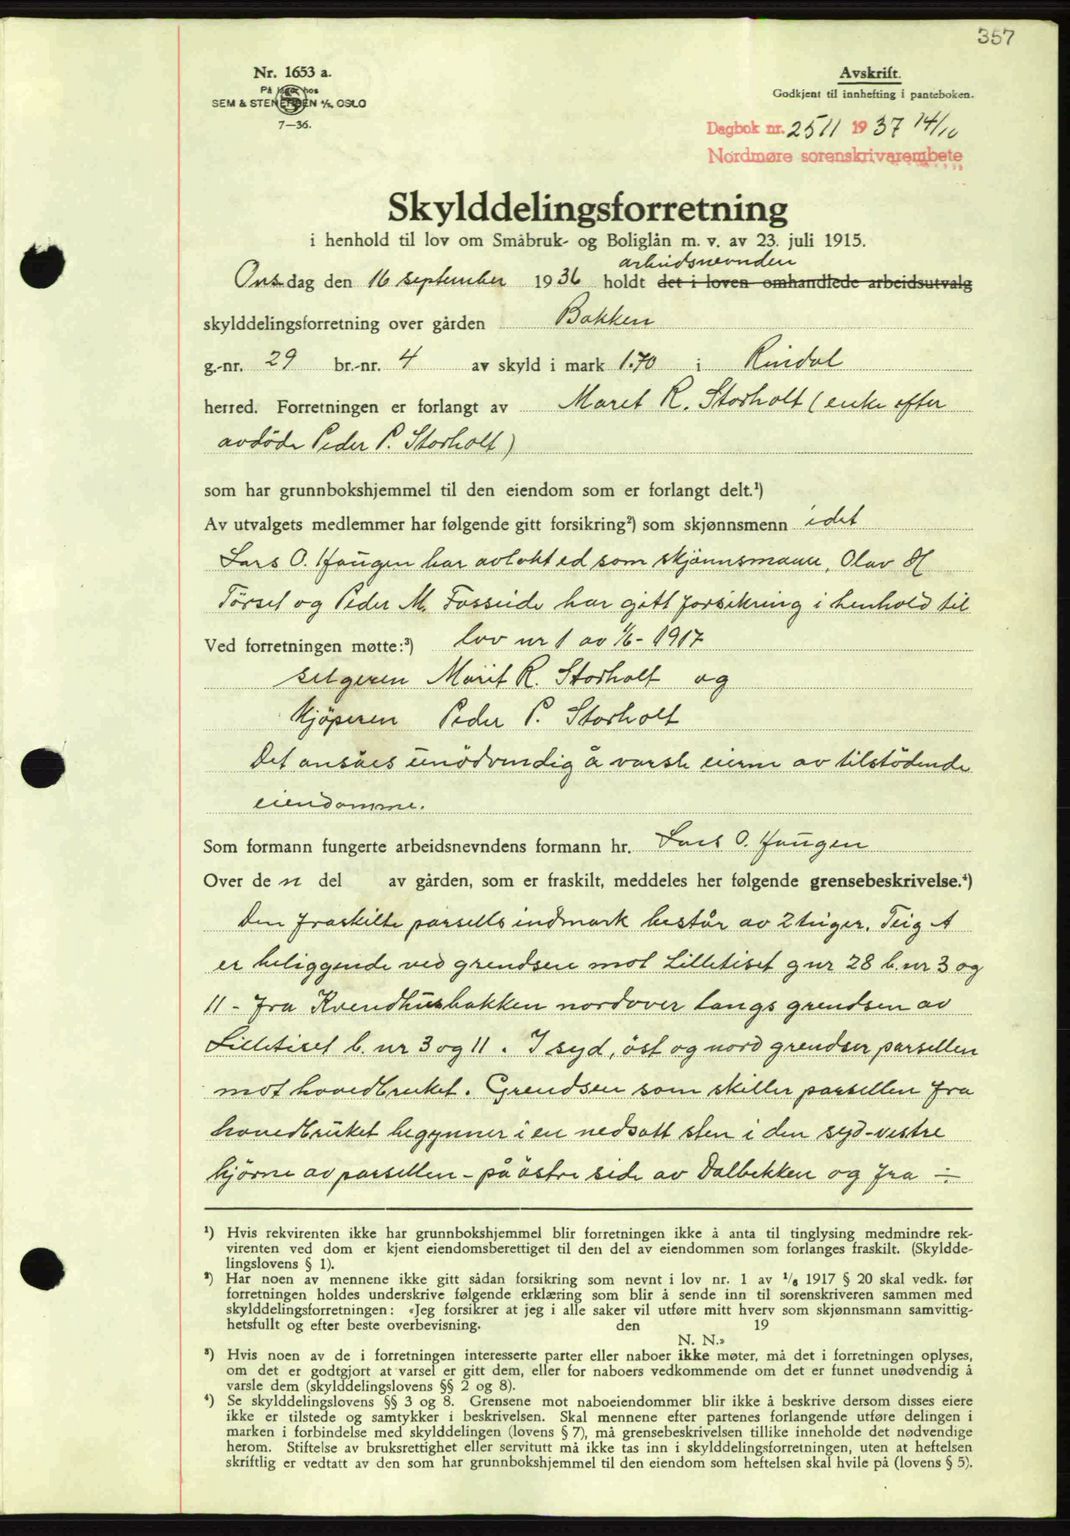 357
Nr. 1653 a.
På lager hos
SEM & STENERSEN A/S, OSLO
7—36.
Avskrift.
Godkjent til innhefting i panteboken.
Dagbok nr. 2511 1937 14/10
Nordmøre sorenskrivarembete
Skylddelingsforretning
i henhold til lov om Småbruk- og Boliglån m. v. av 23. juli 1915.
arbeidsnevnden
Onsdag den 16 september 1936 holdt det i loven omhandlede arbeidsutvalg
skylddelingsforretning over gården Bakken
g.-nr. 29 br.-nr. 4 av skyld i mark 1.70 i Rindal
herred. Forretningen er forlangt av Maret R. Storholt (enke efter
avdöde Peder P. Storholt)
som har grunnbokshjemmel til den eiendom som er forlangt delt.¹)
Av utvalgets medlemmer har følgende gitt forsikring²) som skjønnsmenn idet
Lars O. Haugen har avlakt ed som skjönnsmann, Olav H
Törset og Peder M. Fosseide har gitt forsikring i henhold til
Ved forretningen møtte:³) lov nr 1 av 1/6-1917
selgeren Marit R. Storholt og
Kjöperen Peder P. Storholt
Det ansåes unödvendig å varsle eierne av tilstödende
eiendomme.
Som formann fungerte arbeidsnevndens formann hr. Lars O. Haugen
Over den del av gården, som er fraskilt, meddeles her følgende grensebeskrivelse.⁴)
Den fraskilte parsells indmark består av 2 teiger. Teig A
er beliggende ved grendsen mot Lilletiset gnr 28 b.nr 3 og
11 - fra Kvendhusbakken nordover langs grendsen av
Lilletiset b. nr 3 og 11. I syd, öst og nord grendser parsellen
mot hovedbruket. Grendsen som skiller parsellen fra
hovedbruket begynner i en nedsatt sten i den syd-vestre
hjörne av parsellen - på östre side av Dalbekken og fra ÷
¹) Hvis rekvirenten ikke har grunnbokshjemmel blir forretningen ikke å anta til tinglysing medmindre rek-
virenten ved dom er kjent eiendomsberettiget til den del av eiendommen som forlanges fraskilt. (Skyldde-
lingslovens § 1).
²) Har noen av mennene ikke gitt sådan forsikring som nevnt i lov nr. 1 av 1/6 1917 § 20 skal vedk. før
forretningen holdes underskrive følgende erklæring som blir å sende inn til sorenskriveren sammen med
skylddelingsforretningen: «Jeg forsikrer at jeg i alle saker vil utføre mitt hverv som skjønnsmann samvittig-
hetsfullt og efter beste overbevisning. den 19
N. N.»
³) Hvis noen av de i forretningen interesserte parter eller naboer ikke møter, må det i forretningen oplyses,
om det er godtgjort at varsel er gitt dem, eller for naboers vedkommende om det er funnet unødvendig å
varsle dem (skylddelingslovens §§ 2 og 8).
⁴) Se skylddelingslovens §§ 3 og 8. Grensene mot naboeiendommer blir ikke å beskrive dersom disses eiere
ikke er tilstede og samtykker i beskrivelsen. Skal mennene efter partenes forlangende utføre delingen i
marken i forbindelse med skylddelingen (lovens § 7), må grensebeskrivelsen tillike inneholde det nødvendige
herom. Stiftelse av bruksrettighet eller servitutt må ikke tas inn i skylddelingsforretningen, uten at heftelsen
skriftlig er vedtatt av den som har grunnbokshjemmel til den eiendom som heftelsen skal hvile på (lovens § 5).